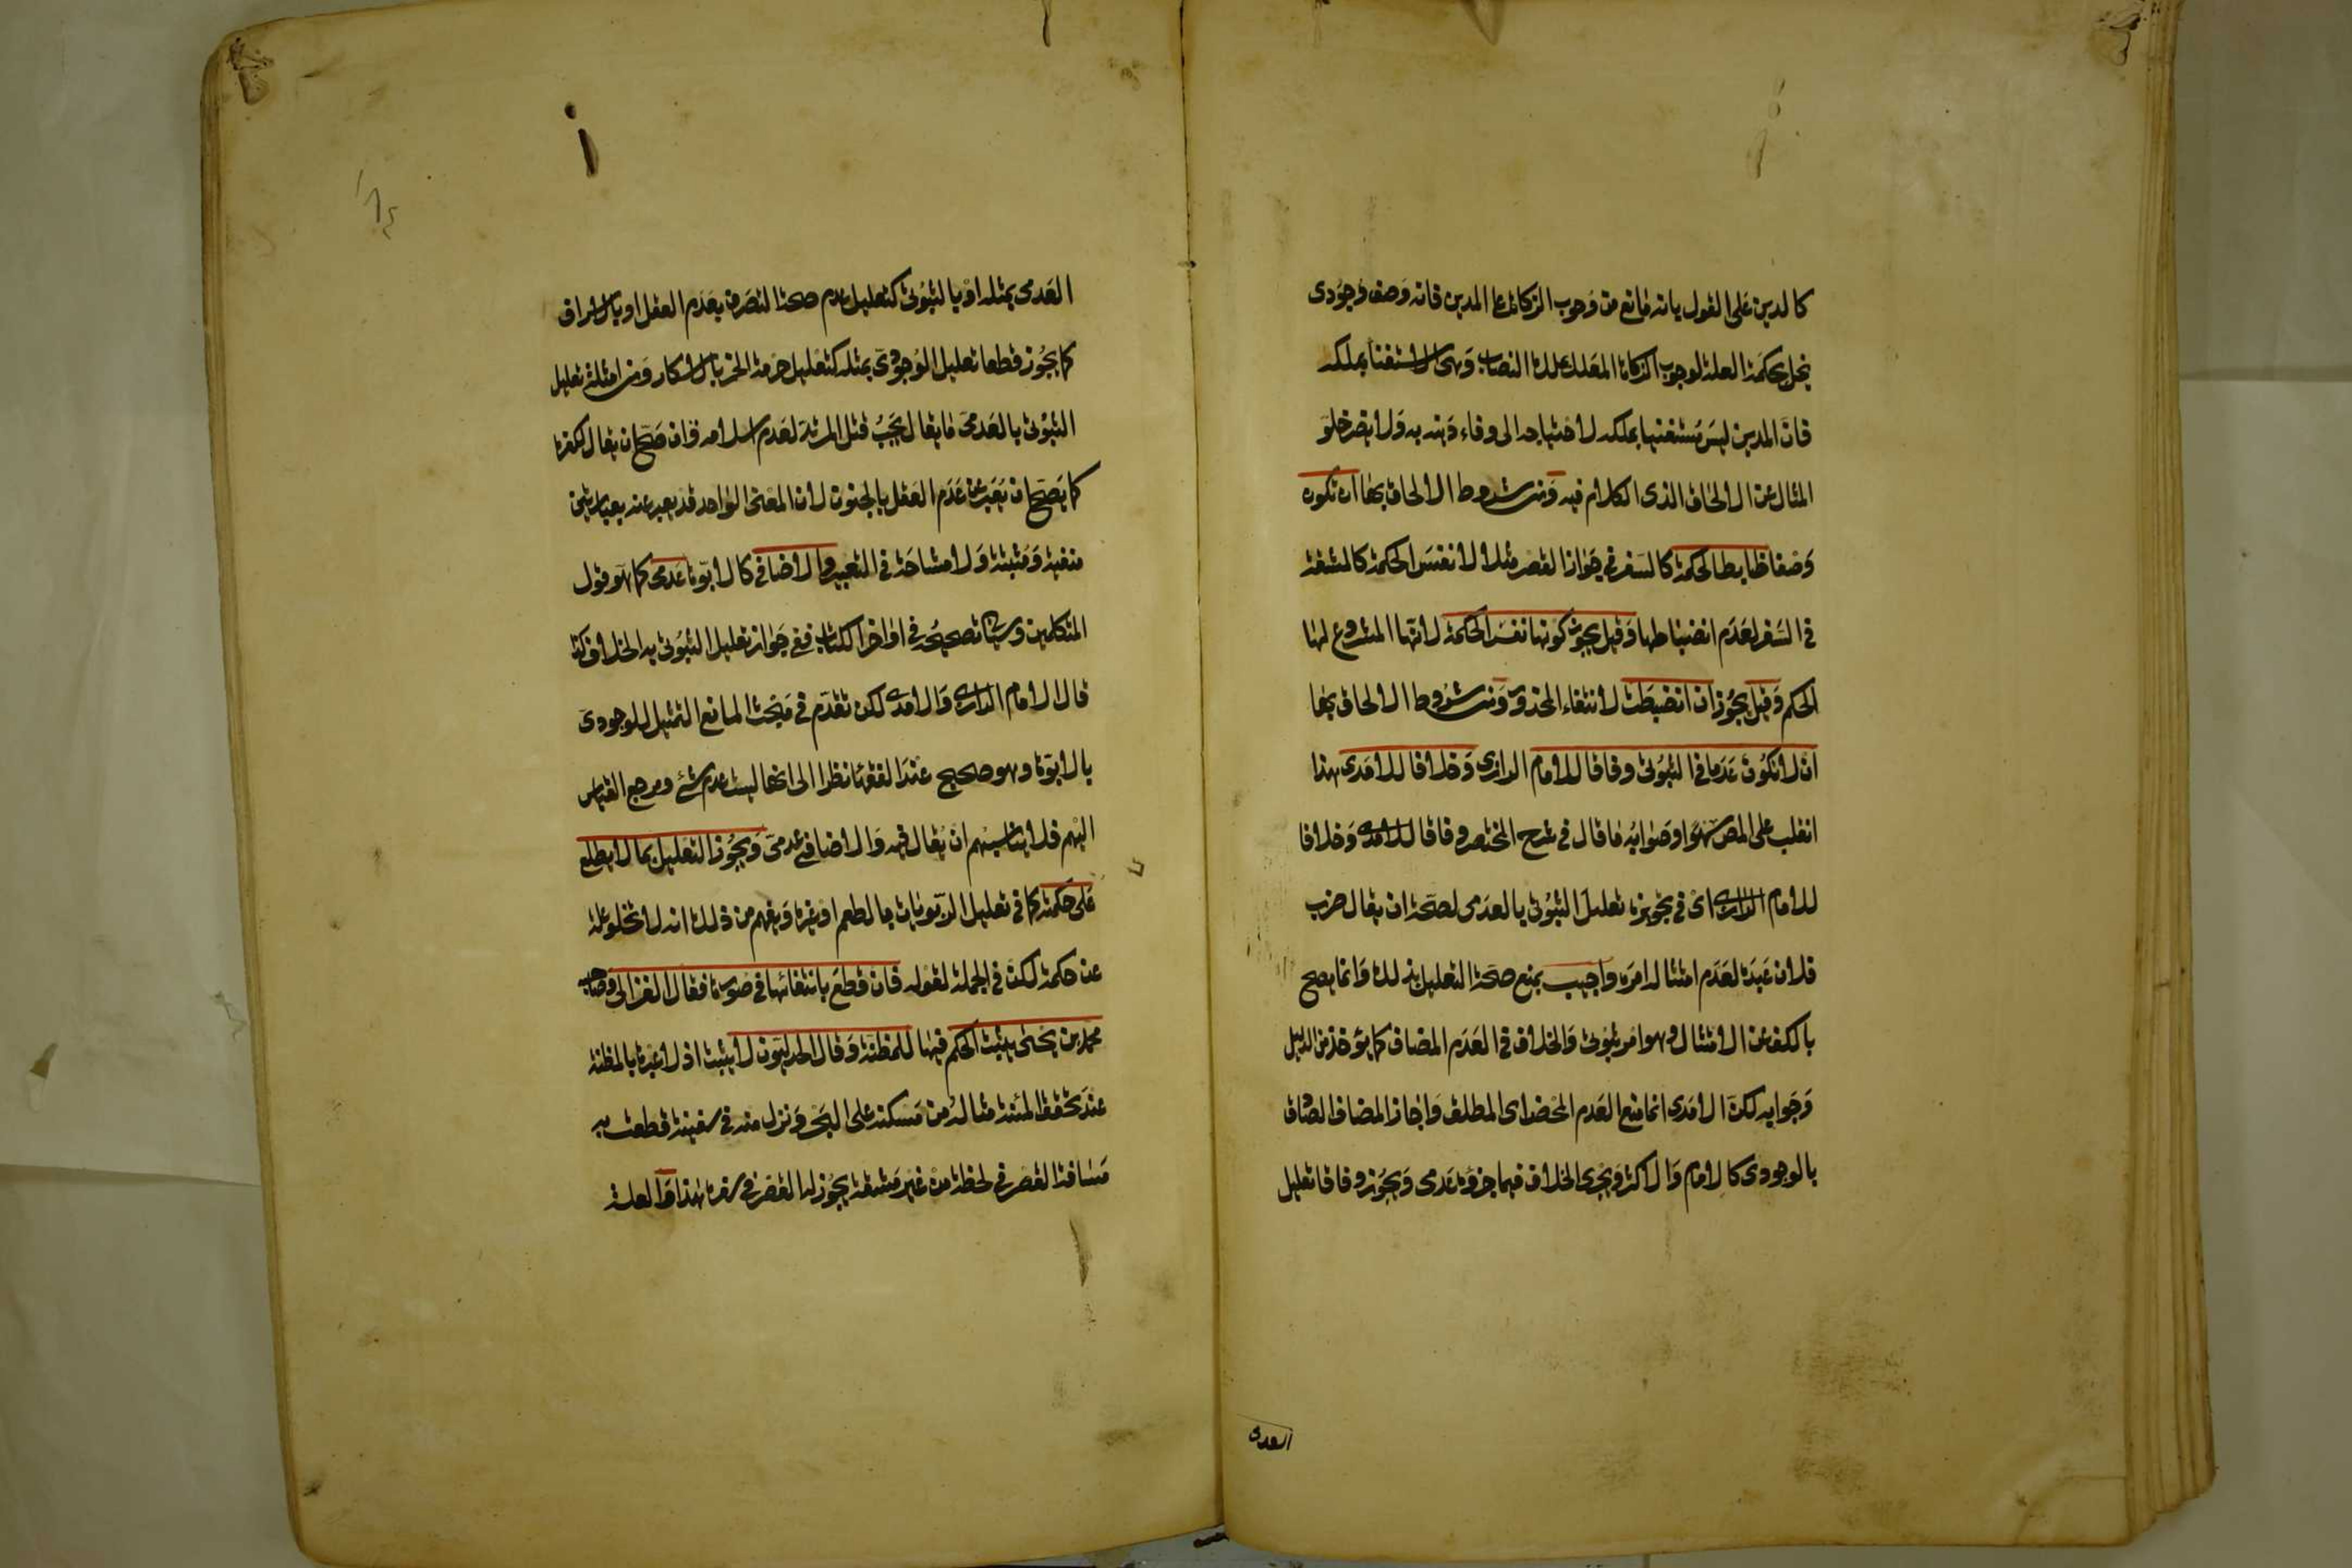 كالدين على القول بانه مانع من وجوب الزكاة على المدين فانه وصف وجودى
يخل بحكمة العلة لوجوب الزكاة المعلل بملك النصاب وهى الاستغناء بملكه
فان المدين ليس مستغنيا بملكه لاحتياجه الى وفاء دينه به ولا يضر خلو
المثال عن الالحاق الذى الكلام فيه ومن شروط الالحاق بها ان تكون
وصفا ضابطا لحكمة كالسفر فى جواز القصر مثلا لا نفس الحكمة كالمشقة
فى السفر لعدم انضباطها وقيل يجوز كونها نفس الحكمة لانها المشروع لها
الحكم وقيل يجوز ان انضبطت لانتفاء المحذور ومن شروط الالحاق بها
ان لا تكون عدما فى الثبوتى وفاقا للامام الرازى وخلافا للامدى هذا
انقلب على المص سهوا وصوابه ما قال فى شرح المختصر وفاقا للامدى وخلافا
للامام الرازى اى فى تجويزه تعليل الثبوتى بالعدمى لصحة ان يقال ضرب
فلان عبده لعدم امتثال امره واجيب بمنع صحة التعليل بذلك وانما يصح
بالكف عن الامتثال وهو امر ثبوتى والخلاف فى العدم المضاف كما يؤخذ من الدليل
وجوابه لكن الامدى انما منع العدم المحض اى المطلق واجاز المضاف الصادق
بالوجودى كالامام والاكثر ويجرى الخلاف فيما جزؤه عدمى ويجوز وفاقا تعليل
العدمى
العدمى بمثله او بالثبوتى كتعليل عدم صحة التصرف بعدم العقل او بالاسراف
كما يجوز قطعا تعليل الوجودى بمثله كتعليل حرمة الخمر بالاسكار ومن امثلة تعليل
الثبوتى بالعدمى ما يقال يجب قتل المرتد لعدم اسلامه وان صح ان يقال لكفره
كما يصح ان يعبر عن عدم العقل بالجنون لان المعنى الواحد قد يعبر عنه بعبارتين
منفية ومثبتة ولا مشاحة فى التعبير والاضافى كالابوة عدمى كما هو قول
المتكلمين وسياتى تصحيحه فى اواخر الكتاب ففى جواز تعليل الثبوتى به الخلاف كذا
قال الامام الرازى والامدى لكن تقدم فى مبحث المانع التمثيل للوجودى
بالابوة وهو صحيح عند الفقهاء نظرا الى انها ليست عدم شئ ومرجع القياس
اليهم فلا يناسبهم ان يقال فيه والاضافى عدمى ويجوز التعليل بما لا يطلع
على حكمته كما فى تعليل الربويات بالطعم او غيره ويفهم من ذلك انه لا تخلو علة
عن حكمة لكن فى الجملة لقوله فان قطع بانتفائها فى صورة فقال الغزالى وصاحبه
محمد بن يحيى يثبت الحكم فيها للمظنة وقال الجدليون لا يثبت اذ لا عبرة بالمظنة
عند تحقق المئنة مثاله من مسكنه على البحر ونزل منه فى سفينة قطعت به
مسافة القصر فى لحظة من غير مشقة يجوز له القصر فى سفره هذا والعلة